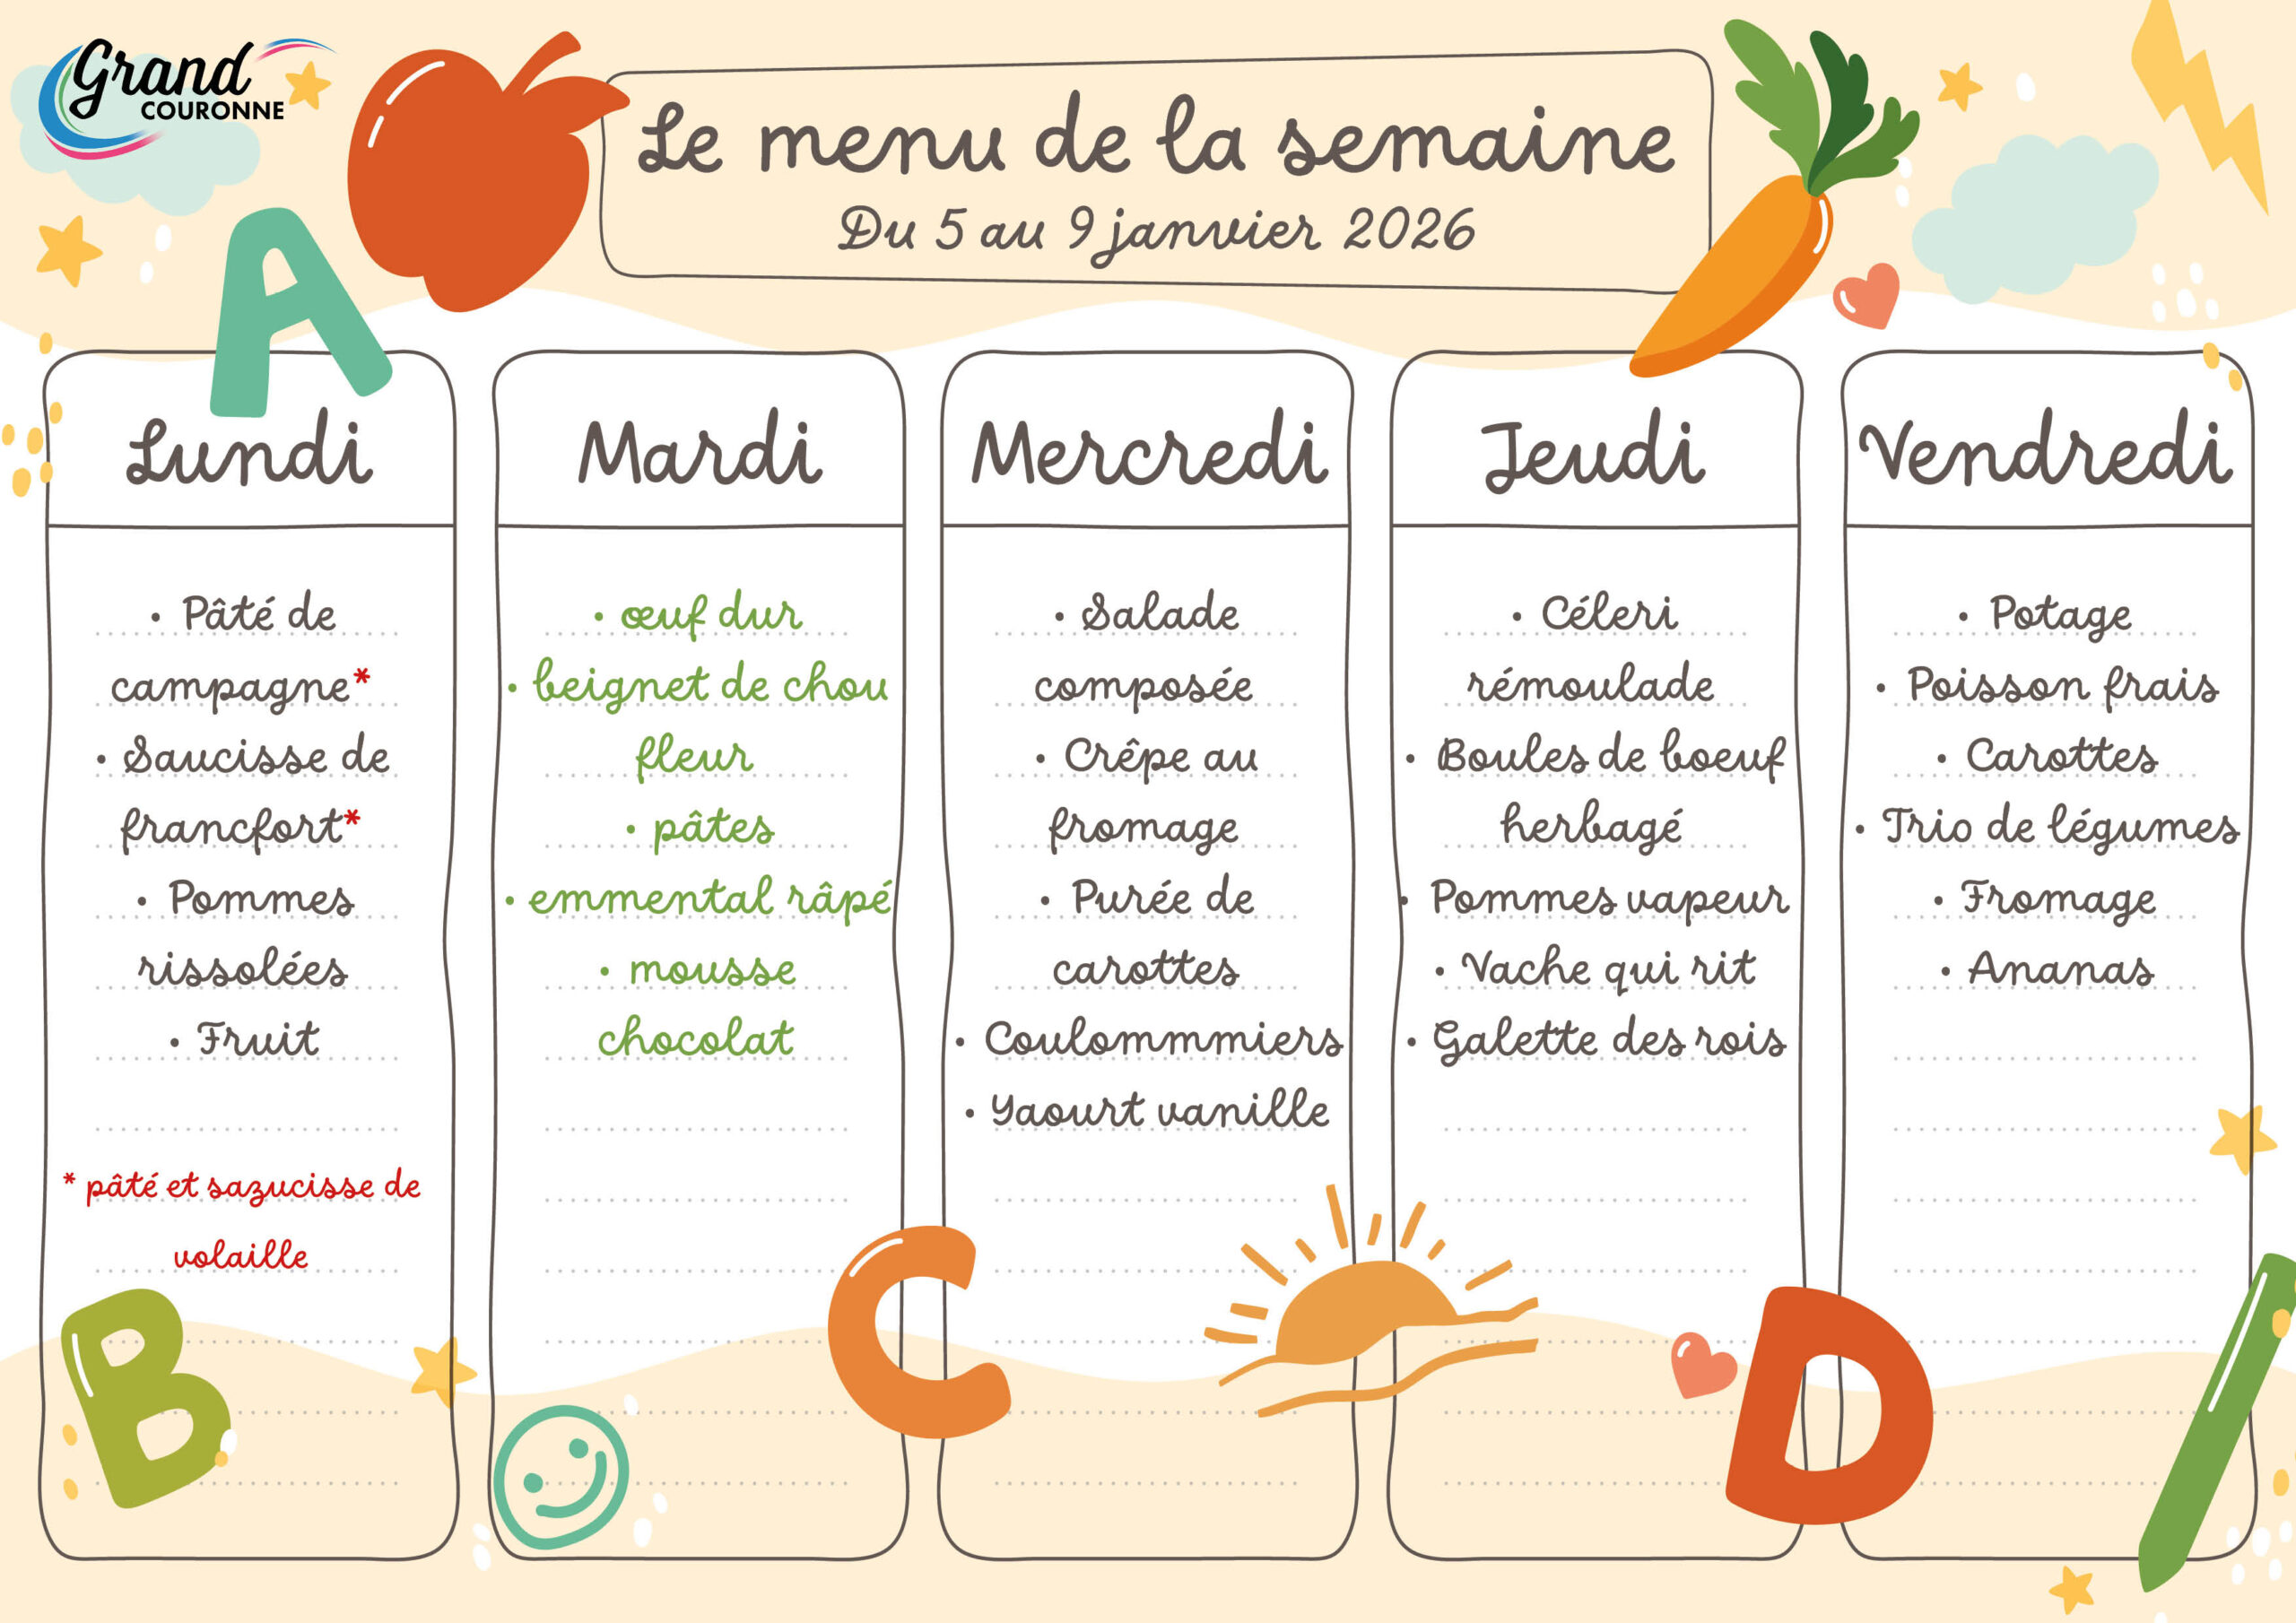 Grand
COURONNE
Le menu de la semaine
Du 5 au 9 janvier 2026
A
Lundi
• Pâté de
campagne*
• Saucisse de
francfort*
• Pommes
rissolées
• Fruit
* pâté et sazucisse de
volaille
B
Mardi
• œuf dur
• beignet de chou
fleur
• pâtes
• emmental râpé
• mousse
chocolat
C
Mercredi
• Salade
composée
• Crêpe au
fromage
• Purée de
carottes
• Coulommmiers
• Yaourt vanille
Jeudi
• Céleri
rémoulade
• Boules de boeuf
herbagé
• Pommes vapeur
• Vache qui rit
• Galette des rois
D
Vendredi
• Potage
• Poisson frais
• Carottes
• Trio de légumes
• Fromage
• Ananas